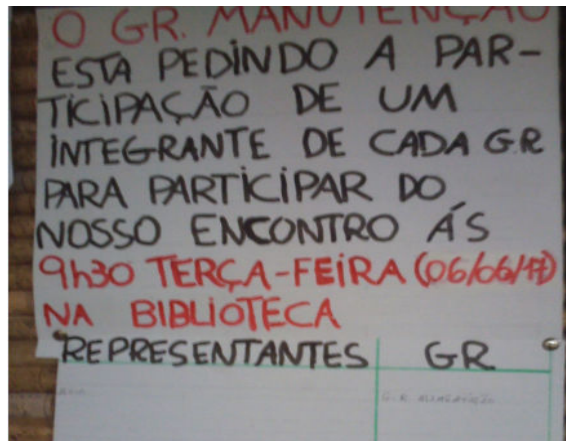 O GR. MANUTENÇÃO
ESTA PEDINDO A PAR-
TICIPAÇÃO DE UM
INTEGRANTE DE CADA GR
PARA PARTICIPAR DO
NOSSO ENCONTRO ÁS
9h30 TERÇA-FEIRA (06/06/17)
NA BIBLIOTECA
REPRESENTANTES GR
G.R.